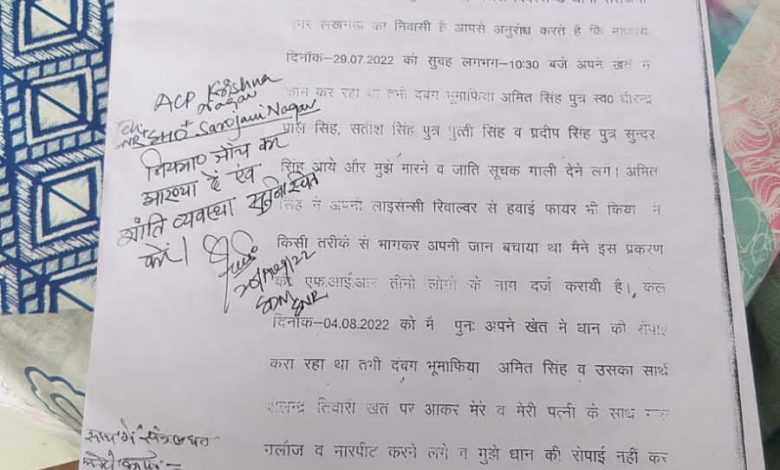 नगर लखनऊ का निवासी है आपसे अनुरोध करते है कि महोदय
दिनॉक-29.07.2022 को सुबह लगभग-10:30 बजे अपने खेत में
काम कर रहा था तभी दवंग भूमाफिया अमित सिंह पुत्र स्व0 धीरेन्द्र
पाल सिंह, सतीश सिंह पुत्र पुत्ती सिंह व प्रदीप सिंह पुत्र सुन्दर
सिंह आये और मुझे मारने व जाति सूचक गाली देने लगे। अमित
सिंह ने अपनी लाइसेन्सी रिवाल्वर से हवाई फायर भी किया मै
किसी तरीके से भागकर अपनी जान बचाया था मैने इस प्रकरण
की एफ.आई.आर तीनो लोगो के नाम दर्ज करायी है।, कल
दिनॉक-04.08.2022 को मै पुनः अपने खेत मे धान की रोपाई
करा रहा था तभी दंवग भूमाफिया अमित सिंह व उसका साथी
तिवारी खेत पर आकर मेरे व मेरी पत्नी के साथ गाली
गलौज व मारपीट करने लगे व मुझे धान की रोपाई नहीं कर
ACP Krishna
Nagar
+
SHO Sarojani Nagar
जाँच कर
आख्या दें एंव
शांति व्यवस्था सुनिश्चित
करें।
SDM
SNR